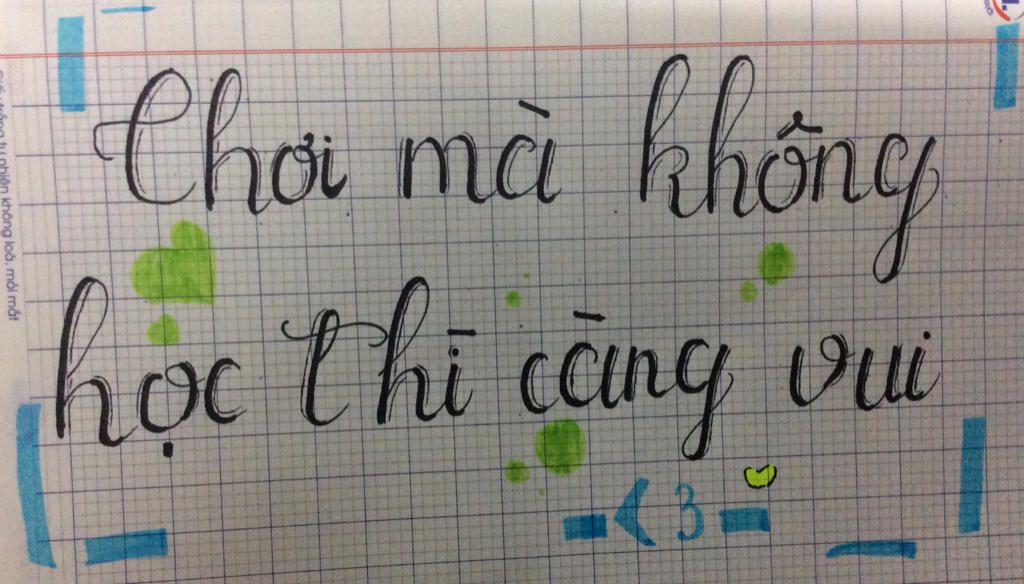 Chơi mà không
học thì càng vui
- <3 -
tự nhiên không loá, mỏi mắt